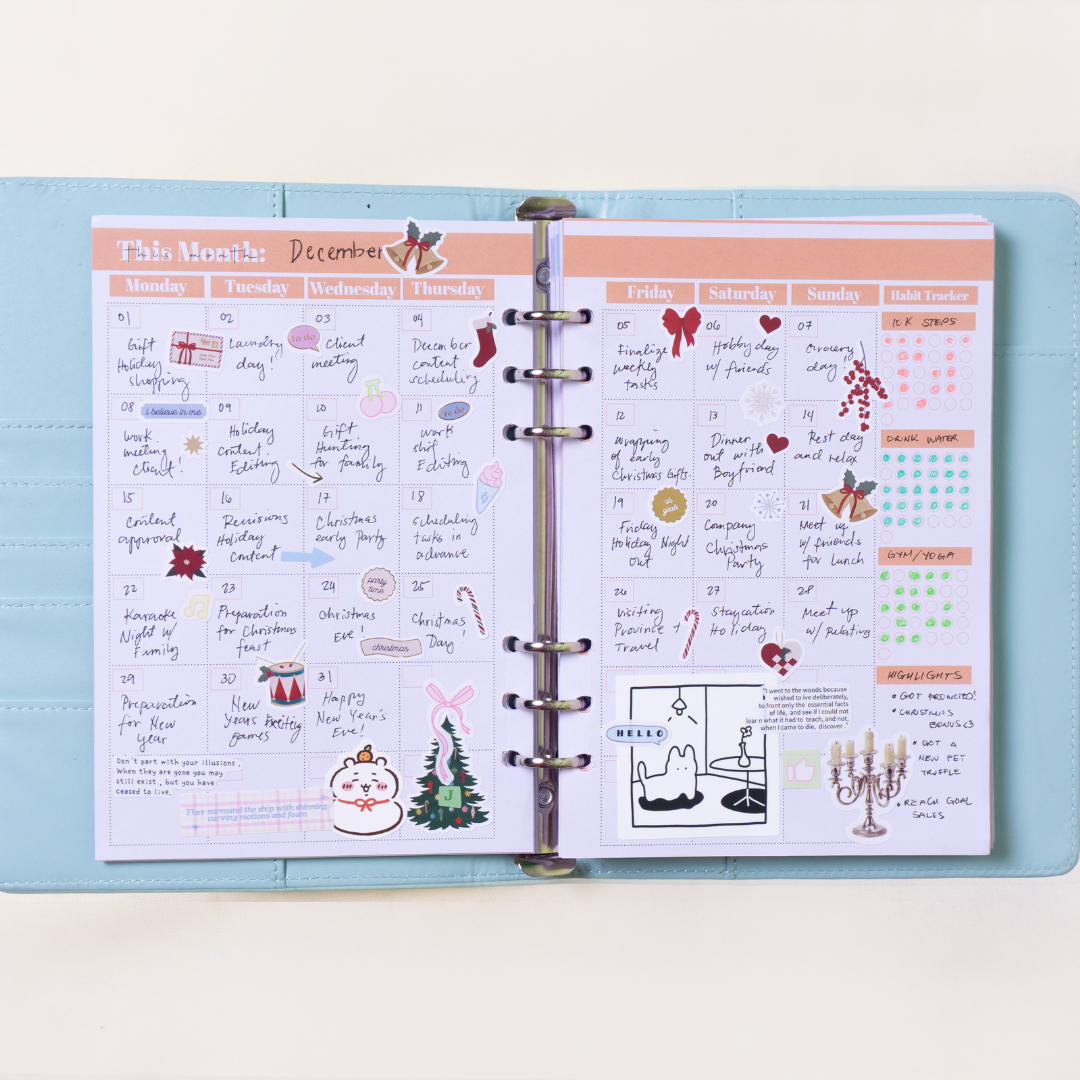 This Month: December
this month:
Monday Tuesday Wednesday Thursday
01
Gift
Holiday
shopping
02
Laundry
day!!
to do
03
Client
meeting
04
December
content
scheduling
08
i believe in me
work
meeting
Client!
09
Holiday
content
Editing
10
Gift
Hunting
for family
11
to do
work
shift
Editing
15
Content
approval
16
Revisions
Holiday
Content
17
Christmas
early Party
18
scheduling
tasks in
advance
22
Karaoke
Night w/
Family
23
Preparation
for Christmas
feast
24
party
time
Christmas
Eve!
christmas
25
Christmas
Day!
29
Preparation
for New
year
30
New
Years
games
31
Happy
New Year's
Eve!
Don't part with your illusions.
When they are gone you may
still exist, but you have
ceased to live.
They surround the ship with shinning
curving motions and foam
J
Friday Saturday Sunday Habit Tracker
05
Finalize
weekly
tasks
06
Hobby day
w/ friends
07
Grocery
day
12
Wrapping
of early
Christmas Gifts.
13
Dinner
out with
Boyfriend
14
Rest day
and relax
19
oh
yeah
Friday
Holiday Night
out
20
Company
Christmas
Party
21
Meet up
w/ friends
for lunch
26
Visiting
Province +
Travel
27
Staycation
Holiday
28
Meet up
w/ relating
HELLO
"I went to the woods because
I wished to live deliberately,
to front only the essential facts
of life, and see if I could not
learn what it had to teach, and not,
when I came to die, discover."
10K STEPS
DRINK WATER
GYM/YOGA
HIGHLIGHTS
• GOT PROMOTED!
• CHRISTMAS
BONUS <3
• GOT A
NEW PET
TRUFFLE
• REACH GOAL
SALES